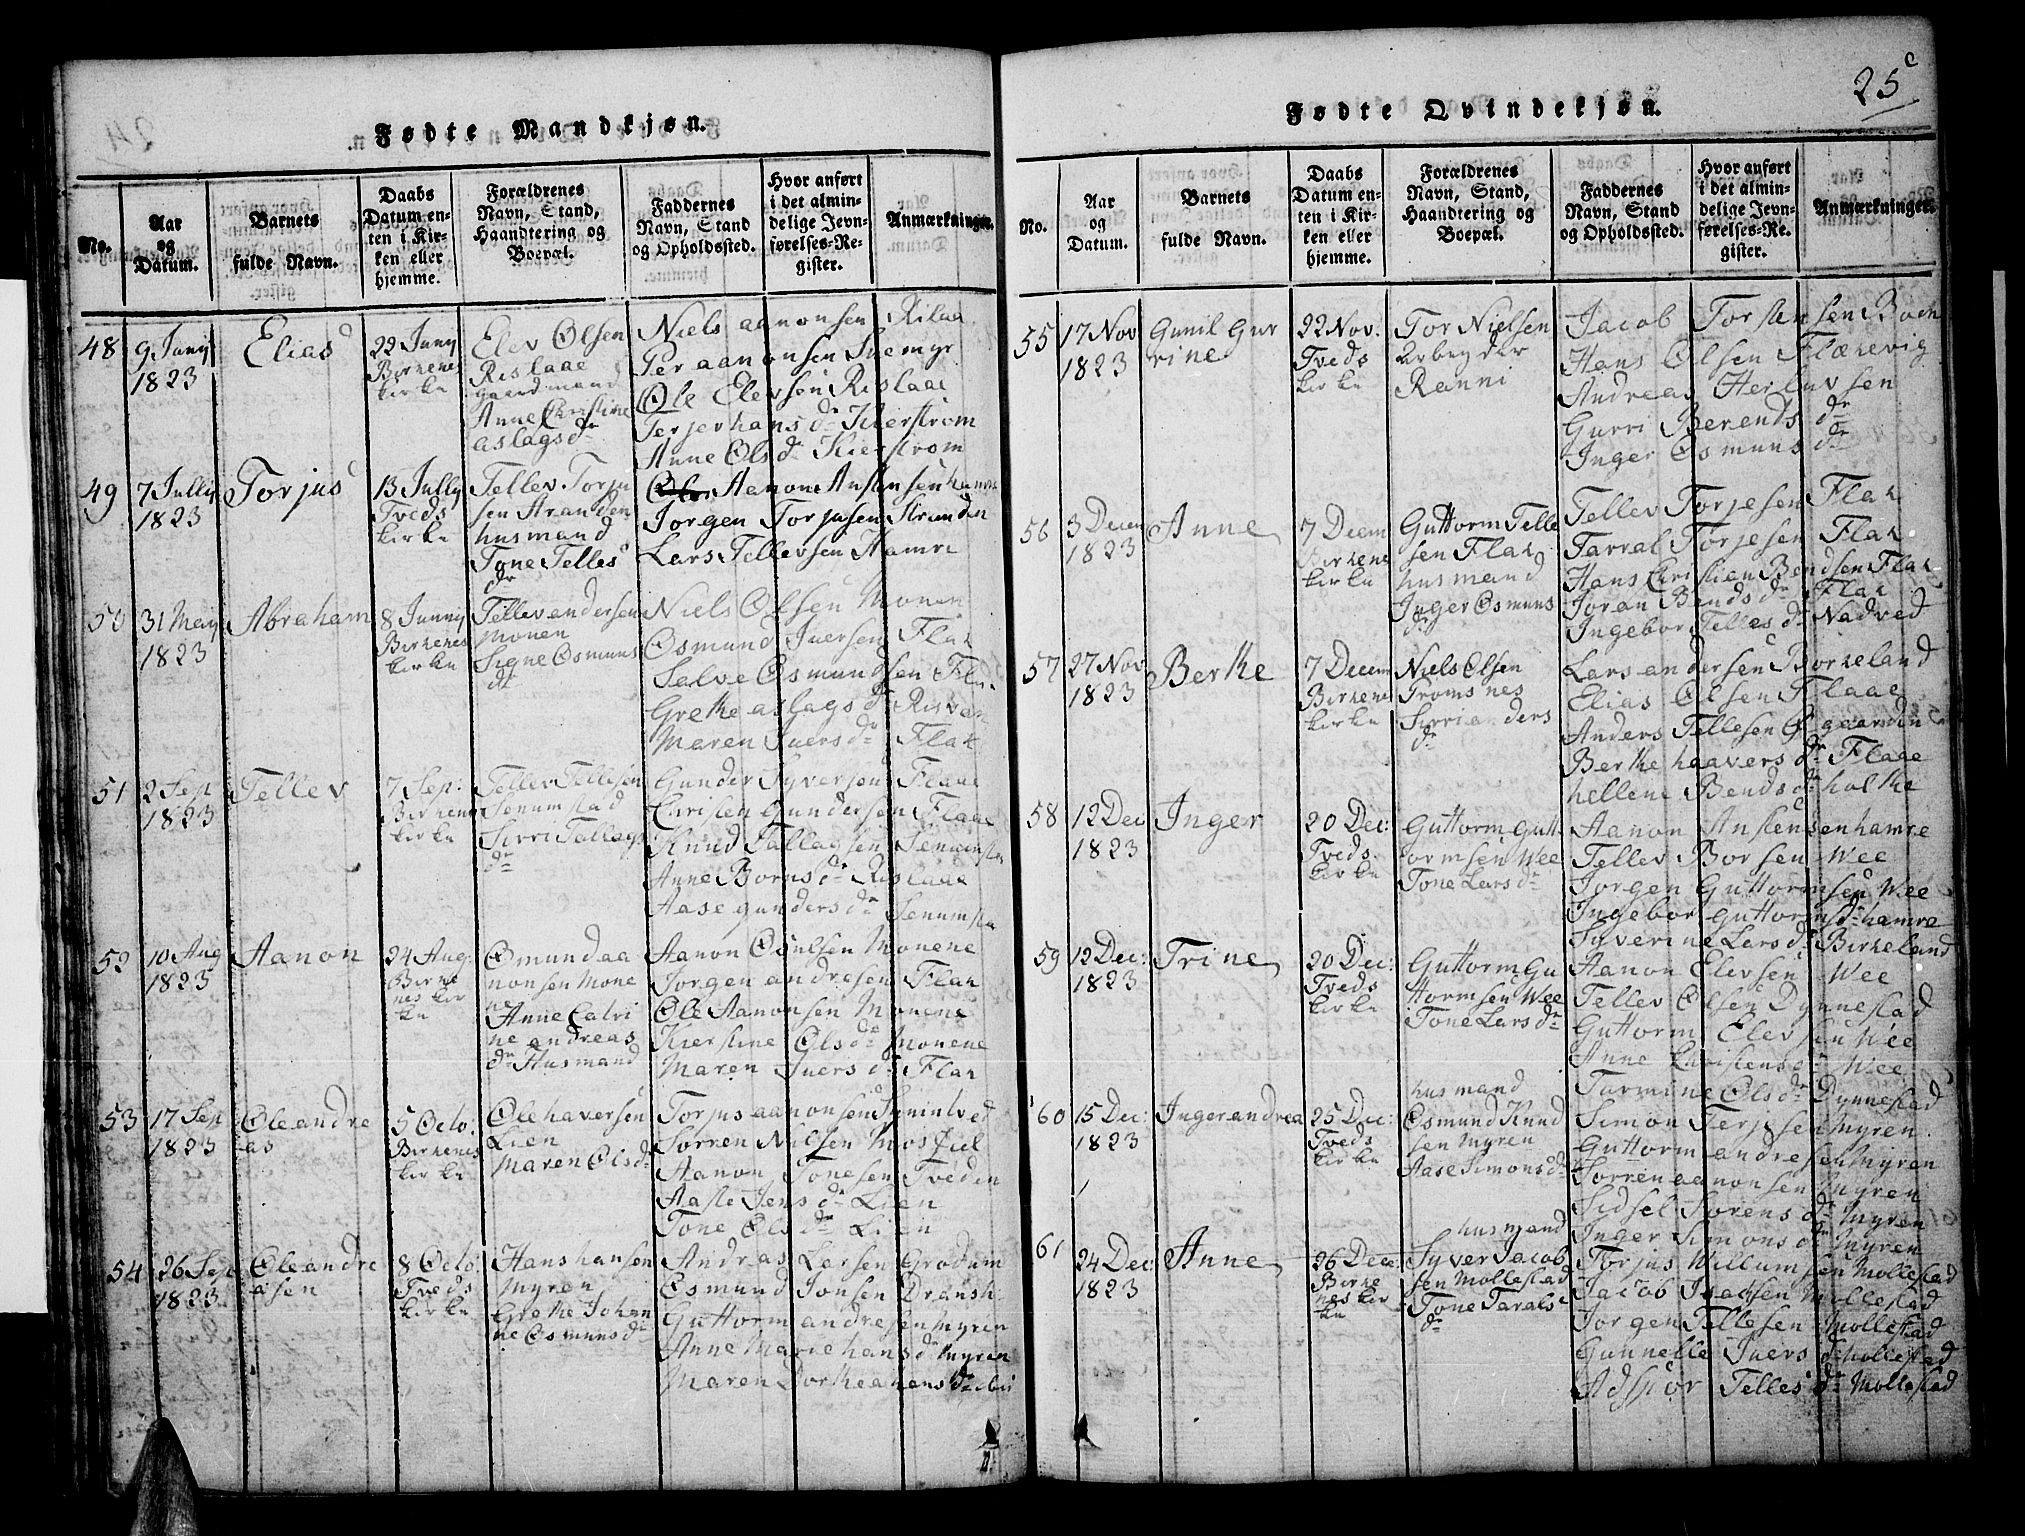 Fødte Mandkjøn.
No.
Aar
og
Datum.
Barnets
fulde Navn.
Daabs
Datum en-
ten i Kir-
ken eller
hjemme.
Forældrenes
Navn, Stand,
Haandtering og
Boepæl.
Faddernes
Navn, Stand
og Opholdssted.
Hvor anført
i det almin-
delige Jevn-
førelses-Re-
gister.
Anmærkninger.
48
9 Juny
1823
Elias
22 Juny
Birkenes
kirke
Elev Olsen
Rislaae
gaardmand
Anne Christine
aslags dr
Niels aanonsen Rilaa
Per aanonsen Svemyr
Ole Elevsen Rislaae
Terjer hans dr Kierstrom
Anne Ols dr Kierstrom
49
7 Jully
1823
Torjus
13 Jully
Tveds
kirke
Tellev Torju
sen Aranden
husmand
Tone Telles
dr
Aanon Anstensen hamre
Jorgen Torjusen Stranden
Lars Tellevsen Hamre
50
31 May
1823
Abraham
8 Junny
Birkenes
kirke
Tellev andersen
Monen
Signe Osmuns
dr
Niels Olsen Monen
Osmund Juersen Flak
Salve Osmundsen Flak
Grethe aslags dr Risvan
Maren Juers dr Flak
51
2 Sep
1823
Tellev
7 Sep:
Birkene
kirke
Tellev Tellesen
Senumstad
Sirri Tallags
dr
Gunder Syversen Flaae
Christen Gundersen Flaae
Knud Tallagsen Senumsta
Anne Borns dr Rislaae
Aase gunders dr Senumsta
52
10 Aug
1823
Aanon
24 Aug:
Birke
nes kir
ke
Osmund aa
nonsen Mone
ne
Anne Catri
ne andreas
dr Husmand
Aanon Osulsen Monene
Jorgen andresen Flak
Ole Aanonsen Monene
Kierstine Ols dr Monene
Maren Juers dr Flak
53
17 Sep
1823
Ole andre
as
5 Octo:
Birkenes
kirke
Ole haversen
Lien
Maren Ols dr
Torjus aanonsen
Sorren Nilsen Mosfiel
Aanon Tonesen Tveden
Aaste Jens dr Lien
Tone Ols dr Lien
54
26 Sep
1823
Ole andre
asen
8 Octo:
Tveds
kirke
Hans hansen
Myren
Grethe Johan
ne Osmuns dr
Andras Larsen Grodum
Osmund Jonsen Dransh
Guttorm andresen Myren
Anne Marie hans dr Myren
Maren Dorthea hans dr
Fødte Qvindekjøn.
25
No.
Aar
og
Datum.
Barnets
fulde Navn.
Daabs
Datum en-
ten i Kir-
ken eller
hjemme.
Forældrenes
Navn, Stand,
Haandtering og
Boepæl.
Faddernes
Navn, Stand
og Opholdssted.
Hvor anført
i det almin-
delige Jevn-
førelses-Re-
gister.
Anmærkninger.
55
17 Nov
1823
Gunil Gur
rine
22 Nov.
Tveds
kirke
Tor Nielsen
arbeyder
Ranni
Jacob Torstensen Boch
Hans Olsen Flækevig
Andreas Herluvsen
Gurri Berends dr
Inger Osmuns dr
56
3 Decem
1823
Anne
7 Decem
Birkene
kirke
Guttorm Telle
sen Flak
husmand
Inger Osmuns
dr
Tellev Torjesen Flak
Tarral Torjesen Flak
Hans Christien Bendsen Flak
Joran Bends dr Flak
Ingebor Telles dr Nadved
57
27 Nov
1823
Berthe
7 Decem
Birkene
kirke
Niels Olsen
Tromsnes
Sirri anders
dr
Lars andersen Borkeland
Elias Olsen Flaae
Anders Tellesen Øgaarden
Berthe haavers dr Flaae
hellene Bends dr holthe
58
12 Dec
1823
Inger
20 Dec:
Tveds
kirke
Guttorm Gutt
ormsen Wee
Tone Lars dr
Aanon Anstensen hamre
Tellev Borsen Wee
Jorgen Guttormsen Wee
Ingebor guttorms dr hamre
Syverine Lars dr Birkeland
59
12 Dec:
1823
Trine
20 Dec:
Tveds
kirke
Guttorm Gu
ttormsen Wee
Tone Lars dr
Aanon Elevsen Wee
Tellev Olsen Dynnestad
Guttorm Elevsen Wee
Anne Christens dr Wee
Tarmine Ols dr Dynnestad
60
15 Dec:
1823
Inger andrea
25 Dec:
Tveds
kirke
husmand
Osmund Knud
sen Myren
Aase Simons dr
Simon Terjesen Myren
Guttorm andresen Myren
Sorren aanonsen Myren
Sidsel Sorens dr Myren
Inger Simons dr Myren
61
24 Dec:
1823
Anne
26 Dec:
Birke
nes kir
ke
husmand
Syver Jacob
sen Mollestad
Tone Tarals
dr
Torjus Willumsen Mollestad
Jacob Isachsen Mollestad
Jorgen Tellesen Mollestad
Gunnelle Juers dr Mollestad
Adsior Telles dr Mollestad